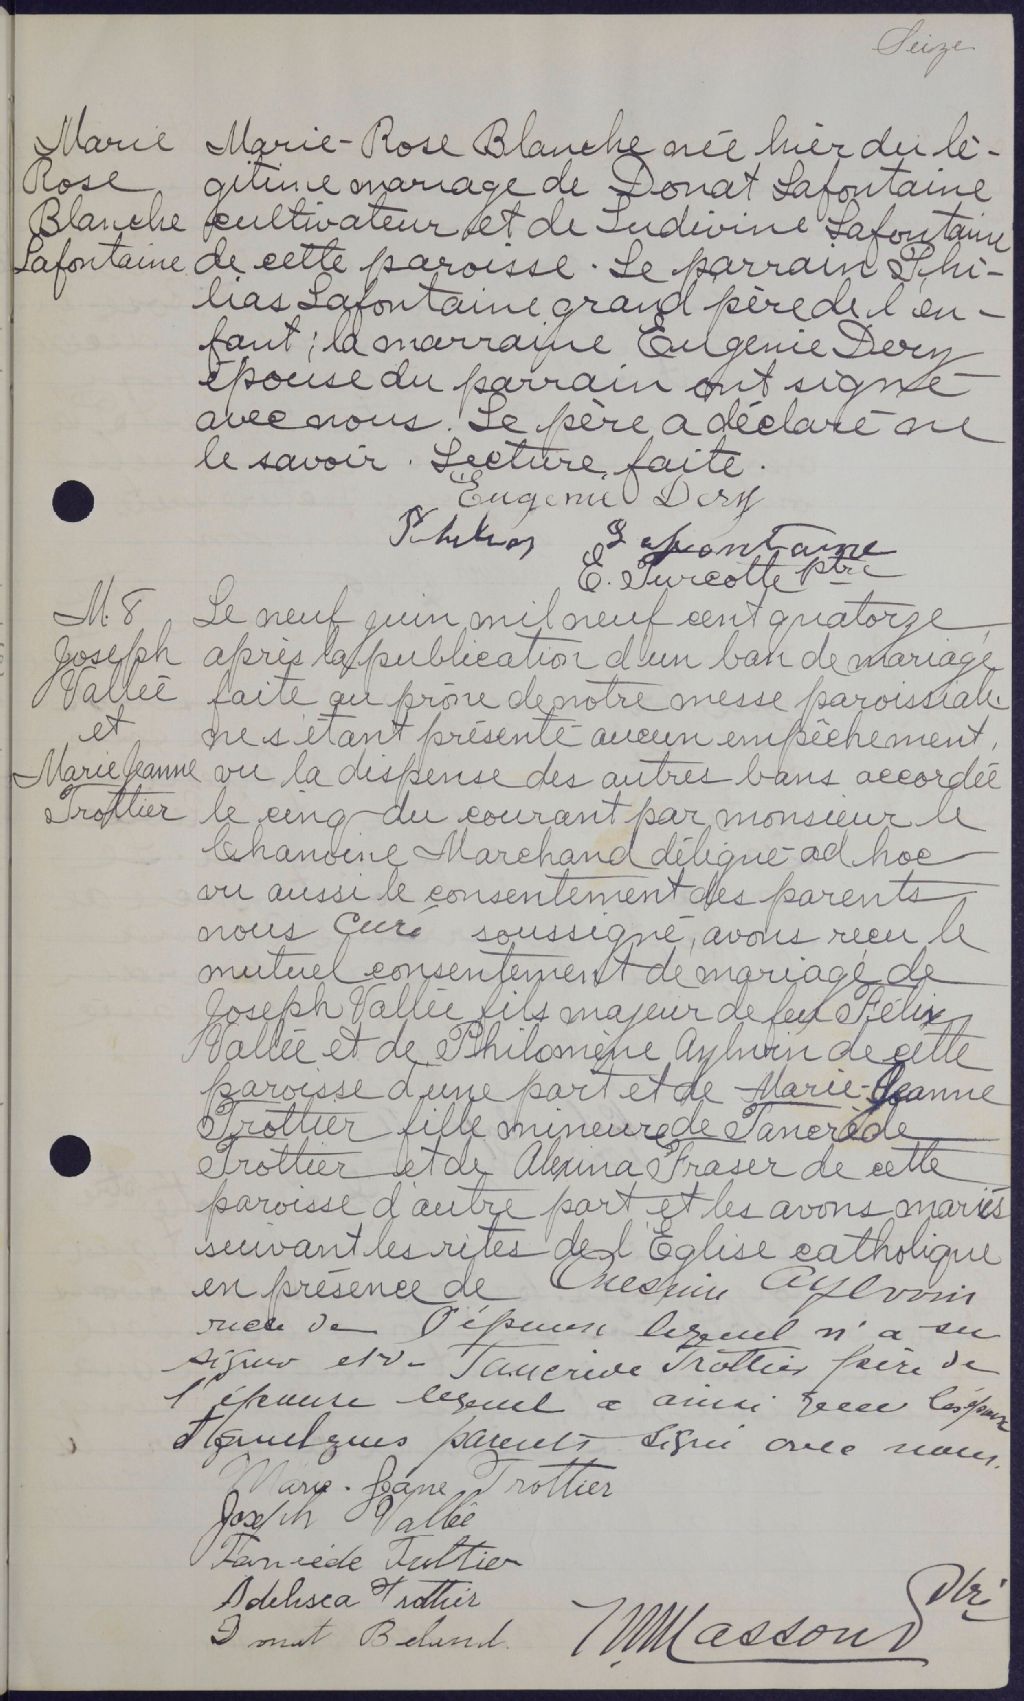 Seize
Marie
Rose
Blanche
Lafontaine
Marie-Rose Blanche née hier du lé-
gitime mariage de Donat Lafontaine
cultivateur et de Ludivine Lafontaine
de cette paroisse. Le parrain Phi-
lias Lafontaine grand père de l'en-
fant; la marraine Eugenie Dery
épouse du parrain ont signé
avec nous. Le père a déclaré ne
le savoir. Lecture faite.
Eugenie Dery
Philias Lafontaine
E. Turcotte ptre
M. 8
Joseph
Vallée
et
Marie Jeanne
Trottier
Le neuf juin mil neuf cent quatorze,
après la publication d'un ban de mariage
faite au prône de notre messe paroissiale
ne s'étant présenté aucun empêchement,
vu la dispense des autres bans accordée
le cinq du courant par monsieur le
Chanoine Marchand délégué ad hoc
vu aussi le consentement des parents
nous Curé soussigné, avons reçu le
mutuel consentement de mariage de
Joseph Vallée fils majeur de feu Félix
Vallée et de Philomène Aylwin de cette
paroisse d'une part et de Marie-Jeanne
Trottier fille mineure de Tancrède
Trottier et de Alexina Fraser de cette
paroisse d'autre part et les avons mariés
suivant les rites de l'Église catholique
en présence de Onesime Aylwin
de l'époux lequel n'a su
signer et de Tancrède Trottier père de
l'épouse lequel a ainsi que les époux
et quelques parents signé avec nous.
Marie-Jeane Trottier
Joseph Vallée
Tancède Trottier
Trottier
Donat Beland
Massou ptre